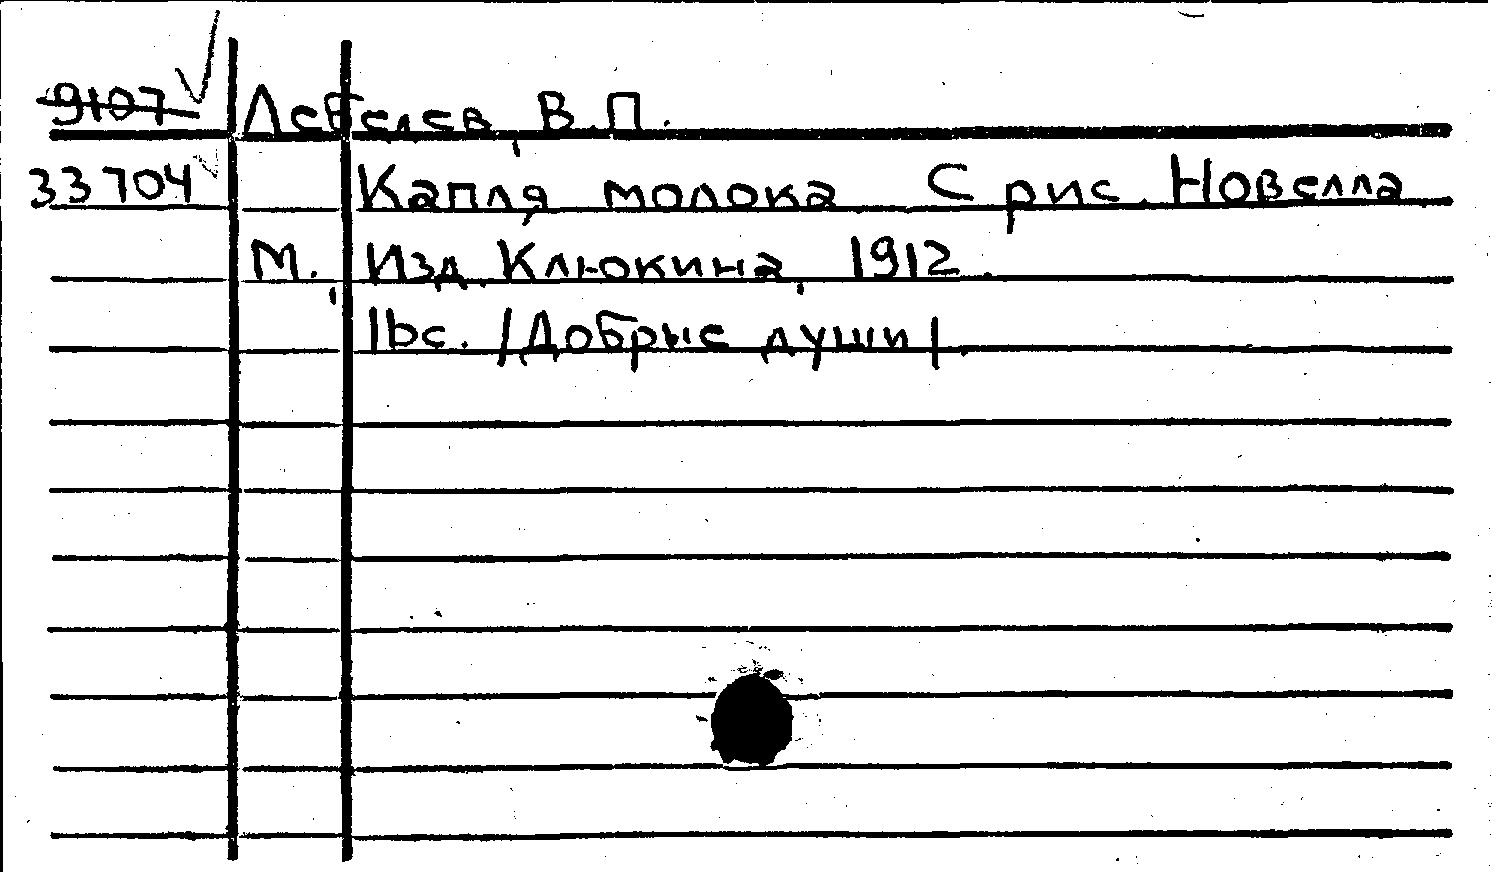 9107 Лебедев, В.П.
33704 Капля молока С рис. Новелла
М., Изд. Клюкина, 1912.
16с. /Добрые души/